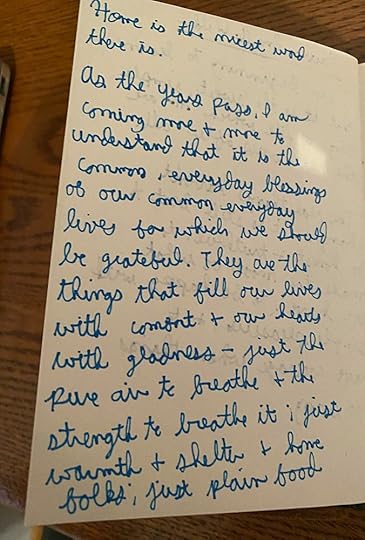 Home is the nicest word
there is.
As the years pass, I am
coming more + more to
understand that it is the
common, everyday blessings
of our common everyday
lives for which we should
be grateful. They are the
things that fill our lives
with comont + our hearts
with gladness - just the
pure air to breathe + the
strength to breathe it; just
warmth + shelter + home
folks; just plain food